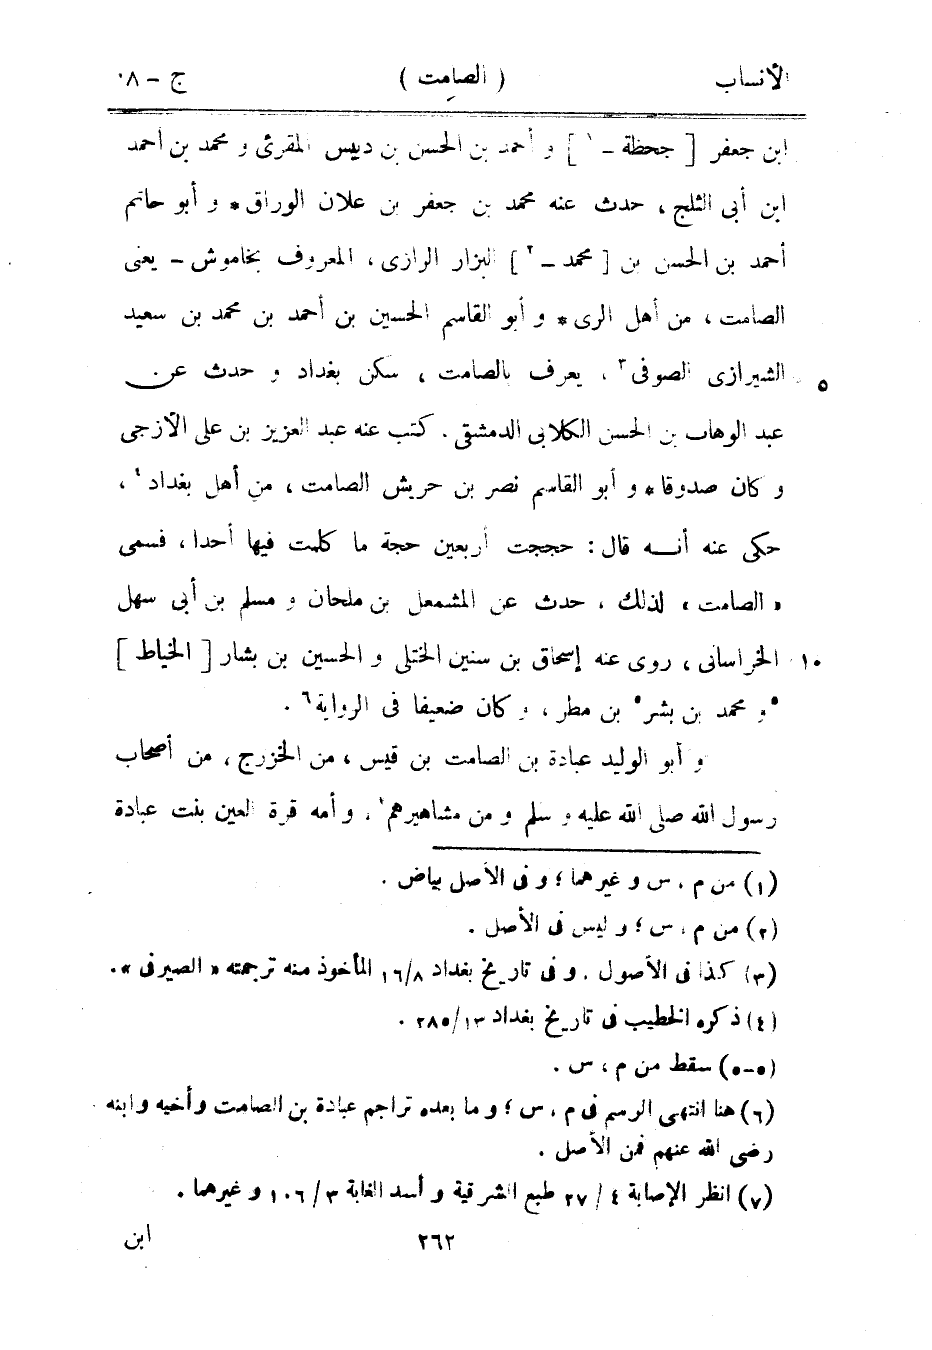 الأنساب ( الصامت ) ج - ٨
ابن جعفر [ جحظة - ١ ] و أحمد بن الحسن بن دبيس المقرئ و محمد بن أحمد
ابن أبى الثلج ، حدث عنه محمد بن جعفر بن علان الوراق * و أبو حاتم
أحمد بن الحسن بن [ محمد - ٢ ] البزار الرازى ، المعروف بخاموش - يعنى
الصامت ، من أهل الرى * و أبو القاسم الحسين بن أحمد بن محمد بن سعيد
الشيرازى الصوفى ٣ ، يعرف بالصامت ، سكن بغداد و حدث عن ٥
عبد الوهاب بن الحسن الكلابى الدمشقى . كتب عنه عبد العزيز بن على الأزجى
و كان صدوقا * و أبو القاسم نصر بن حريش الصامت ، من أهل بغداد ٤ ،
حكى عنه أنـــه قال : حججت أربعين حجة ما كلمت فيها أحدا ، فسمى
« الصامت » لذلك ، حدث عن المشمعل بن ملحان و مسلم بن أبى سهل
الخراسانى ، روى عنه إسحاق بن سنين الختلى و الحسين بن بشار [ الخياط ] ١٠
٥ و محمد بن بشر ٥ بن مطر ، و كان ضعيفا فى الرواية ٦ .
و أبو الوليد عبادة بن الصامت بن قيس ، من الخزرج ، من أصحاب
رسول الله صلى الله عليه و سلم و من مشاهيرهم ، و أمه قرة العين بنت عبادة
(١) من م ، س و غيرهما ؛ و فى الأصل بياض .
(٢) من م ، س ؛ و ليس فى الأصل .
(٣) كذا فى الأصول ، و فى تاريخ بغداد ١٦/٨ المأخوذ منه ترجمته « الصيرفى » .
(٤) ذكره الخطيب فى تاريخ بغداد ٢٨٥/١٣ .
(٥-٥) سقط من م ، س .
(٦) هنا انتهى الرسم فى م ، س ؛ و ما بعده تراجم عبادة بن الصامت و أخيه و ابنه
رضى الله عنهم فمن الأصل .
(٧) انظر الإصابة ٤ / ٢٧ طبع الشرقية و أسد الغابة ٣ / ١٠٦ و غيرهما .
٢٦٢ ابن